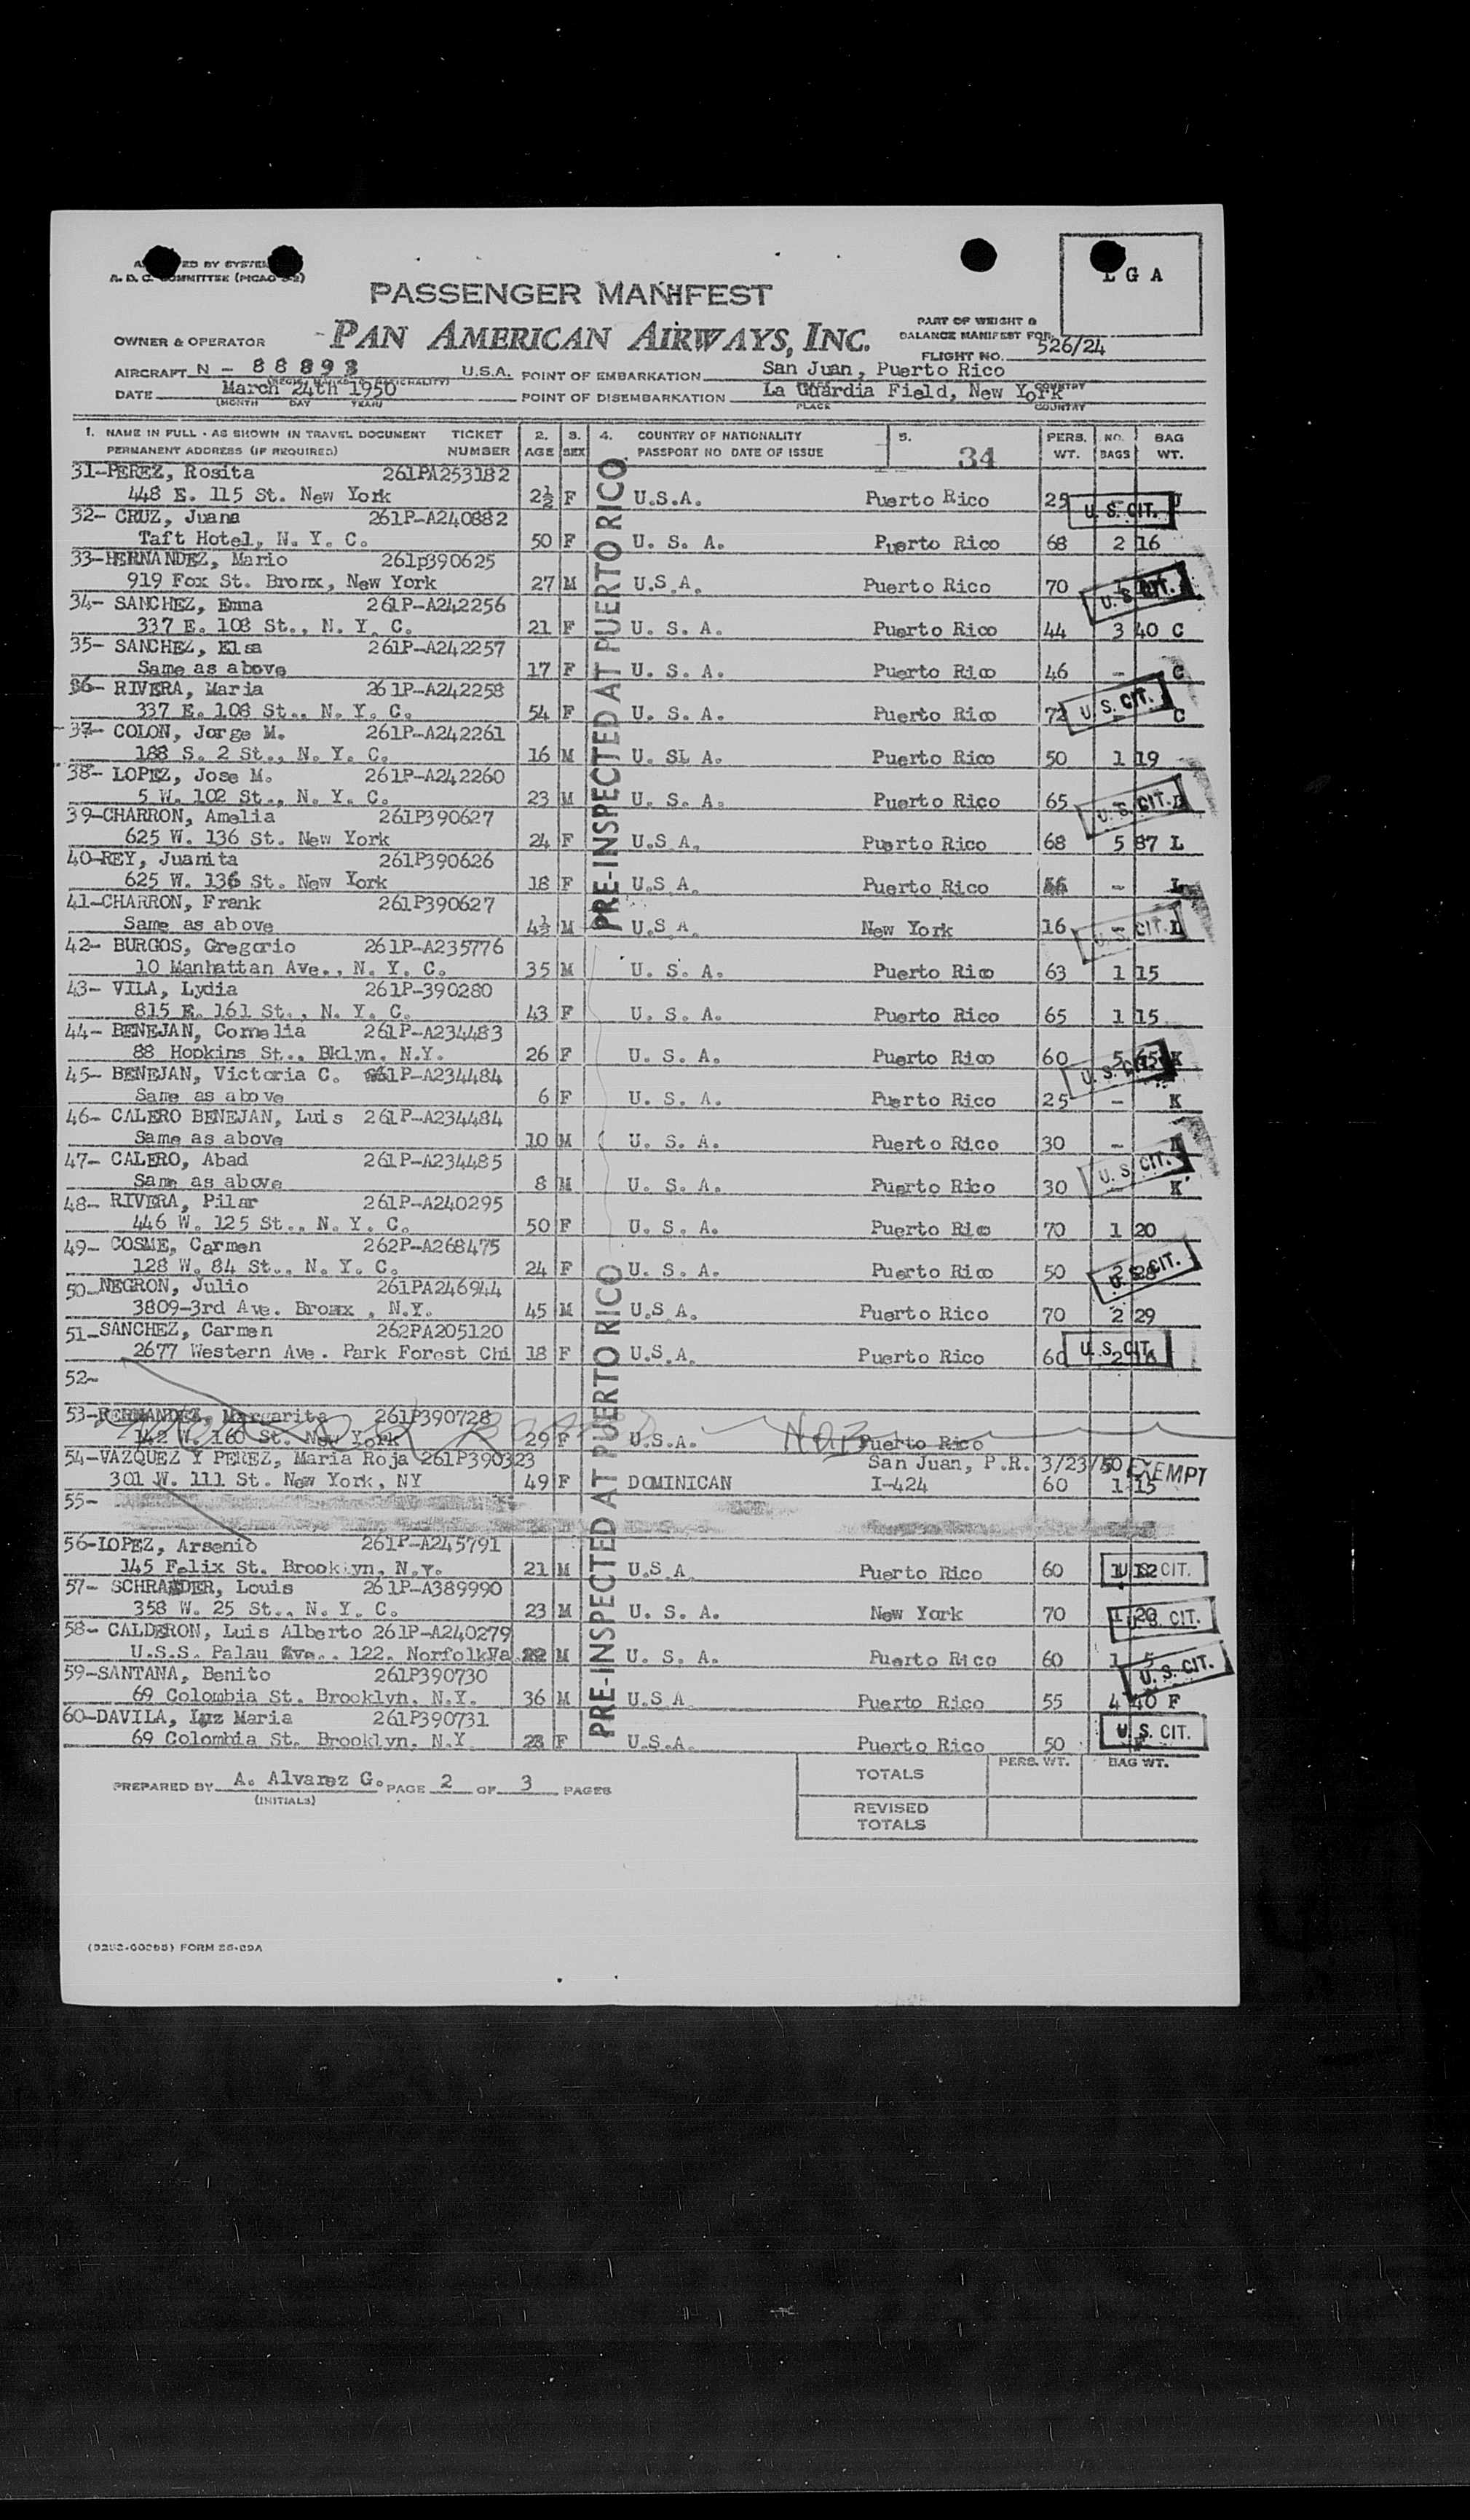 L G A
PASSENGER MANIFEST
PART OF WEIGHT &
OWNER & OPERATOR PAN AMERICAN AIRWAYS, INC. BALANCE MANIFEST FOR
FLIGHT NO. 526/24
AIRCRAFT N - 88893 U.S.A. POINT OF EMBARKATION San Juan, Puerto Rico
DATE March 24th 1950 POINT OF DISEMBARKATION La Guardia Field, New York
(MONTH DAY YEAR) PLACE COUNTRY
1. NAME IN FULL - AS SHOWN IN TRAVEL DOCUMENT TICKET 2. 3. 4. COUNTRY OF NATIONALITY 5. PERS. NO. BAG
PERMANENT ADDRESS (IF REQUIRED) NUMBER AGE SEX PASSPORT NO DATE OF ISSUE 34 WT. BAGS WT.
PRE-INSPECTED AT PUERTO RICO
31-PEREZ, Rosita 261PA253182
448 E. 115 St. New York 2½ F U.S.A. Puerto Rico 25 U. S. CIT. J
32- CRUZ, Juana 261P-A240882
Taft Hotel, N. Y. C. 50 F U. S. A. Puerto Rico 68 2 16
33-HERNANDEZ, Mario 261p390625
919 Fox St. Bronx, New York 27 M U.S.A. Puerto Rico 70 U. S. CIT.
34- SANCHEZ, Emma 261P-A242256
337 E. 108 St., N. Y. C. 21 F U. S. A. Puerto Rico 44 3 40 C
35- SANCHEZ, Elsa 261P-A242257
Same as above 17 F U. S. A. Puerto Rico 46 - C
36- RIVERA, Maria 261P-A242258
337 E. 108 St., N. Y. C. 54 F U. S. A. Puerto Rico 72 U. S. CIT. C
37- COLON, Jorge M. 261P-A242261
188 S. 2 St., N. Y. C. 16 M U. SL A. Puerto Rico 50 1 19
38- LOPEZ, Jose M. 261P-A242260
5 W. 102 St., N. Y. C. 23 M U. S. A. Puerto Rico 65 U. S. CIT.
39-CHARRON, Amelia 261P390627
625 W. 136 St. New York 24 F U.S.A. Puerto Rico 68 5 87 L
40-REY, Juanita 261P390626
625 W. 136 St. New York 18 F U.S.A. Puerto Rico - L
41-CHARRON, Frank 261P390627
Same as above 4½ M U.S.A. New York 16 - U. S. CIT. L
42- BURGOS, Gregorio 261P-A235776
10 Manhattan Ave., N. Y. C. 35 M U. S. A. Puerto Rico 63 1 15
43- VILA, Lydia 261P-390280
815 E. 161 St., N. Y. C. 43 F U. S. A. Puerto Rico 65 1 15
44- BENEJAN, Cornelia 261P-A234483
88 Hopkins St., Bklyn, N.Y. 26 F U. S. A. Puerto Rico 60 5 65 K
U. S. CIT.
45- BENEJAN, Victoria C. 261P-A234484
Same as above 6 F U. S. A. Puerto Rico 25 - K
46- CALERO BENEJAN, Luis 261P-A234484
Same as above 10 M U. S. A. Puerto Rico 30 - K
47- CALERO, Abad 261P-A234485 U. S. CIT.
Same as above 8 M U. S. A. Puerto Rico 30 K
48- RIVERA, Pilar 261P-A240295
446 W. 125 St., N. Y. C. 50 F U. S. A. Puerto Rico 70 1 20
49- COSME, Carmen 262P-A268475
128 W. 84 St., N. Y. C. 24 F U. S. A. Puerto Rico 50 2 28 U. S. CIT.
PRE-INSPECTED AT PUERTO RICO
50-NEGRON, Julio 261PA246944
3809-3rd Ave. Bronx , N.Y. 45 M U.S.A. Puerto Rico 70 2 29
51-SANCHEZ, Carmen 262PA205120
2677 Western Ave. Park Forest Chi 18 F U.S.A. Puerto Rico 60 U. S. CIT.
52-
53-HERNANDEZ, Margarita 261P390728
142 W. 160 St. New York 29 F U.S.A. Puerto Rico
54-VAZQUEZ Y PEREZ, Maria Roja 261P390323 San Juan, P.R. 3/23/50 EXEMPT
301 W. 111 St. New York, NY 49 F DOMINICAN I-424 60 1 15
55-
56-LOPEZ, Arsenio 261P-A245791
145 Felix St. Brooklyn, N.Y. 21 M U.S.A. Puerto Rico 60 1 12 U. S. CIT.
57- SCHRAEDER, Louis 261P-A389990
358 W. 25 St., N. Y. C. 23 M U. S. A. New York 70 1 20 U. S. CIT.
58- CALDERON, Luis Alberto 261P-A240279
U.S.S. Palau Eve.. 122. NorfolkVa 22 M U. S. A. Puerto Rico 60 1 5 U. S. CIT.
59-SANTANA, Benito 261P390730
69 Colombia St. Brooklyn, N.Y. 36 M U.S.A Puerto Rico 55 4 40 F
60-DAVILA, Luz Maria 261P390731
69 Colombia St. Brooklyn, N.Y 28 F U.S.A. Puerto Rico 50 U. S. CIT.
PERS. WT. BAG WT.
TOTALS
PREPARED BY A. Alvarez G. PAGE 2 OF 3 PAGES
(INITIALS)
REVISED
TOTALS
FORM